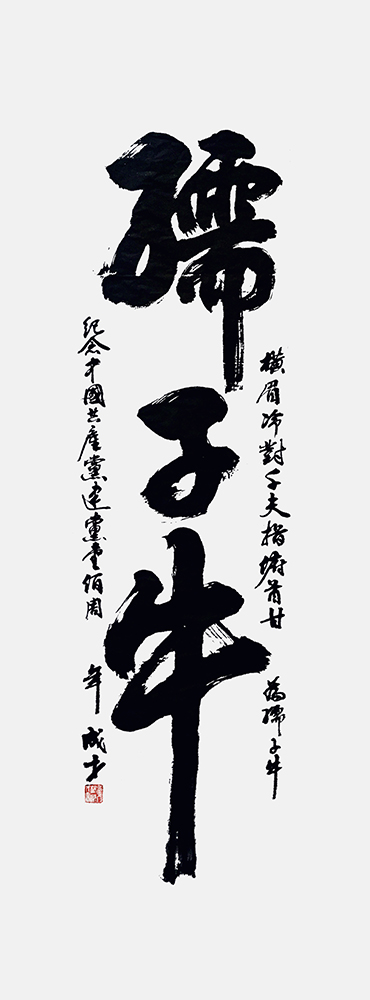 孺子牛
橫眉冷對千夫指俯首甘
為孺子牛
紀念中國共産黨建黨壹佰周
年 成才